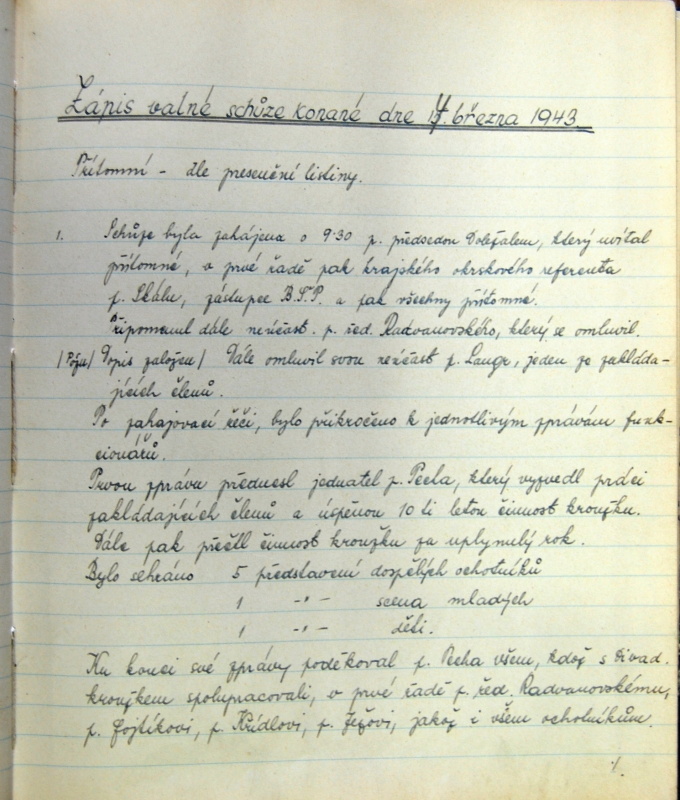 Zápis valné schůze konané dne 14. března 1943
Přítomni - dle presenční listiny.
1. Schůze byla zahájena o 9·30 p. předsedou Doležalem, který uvítal
přítomné, v prvé řadě pak krajského okrskového referenta
p. Skálu, zástupce B.S.P. a pak všechny přítomné.
Připomenul dále neúčast p. řed. Radvanovského, který se omluvil.
/Pozn/ Dopis založen/ Dále omluvil svou neúčast p. Langr, jeden ze zakláda-
jících členů.
Po zahajovací řeči, bylo přikročeno k jednotlivým zprávám funk-
cionářů.
Prvou zprávu přednesl jednatel p. Pecha, který vyzvedl práci
zakládajících členů a úspěnou 10 ti letou činnost kroužku.
Dále pak přečtl činnost kroužku za uplynulý rok.
Bylo sehráno 5 představení dospělých ochotníků
1 -"- scena mladých
1 -"- děti.
Ku konci své zprávy poděkoval p. Pecha všem, kdož s divad.
kroužkem spolupracovali, v prvé řadě p. řed. Radvanovskému,
p. Fojtíkovi, p. Křídlovi, p. Ježovi, jakož i všem ochotníkům.
./.